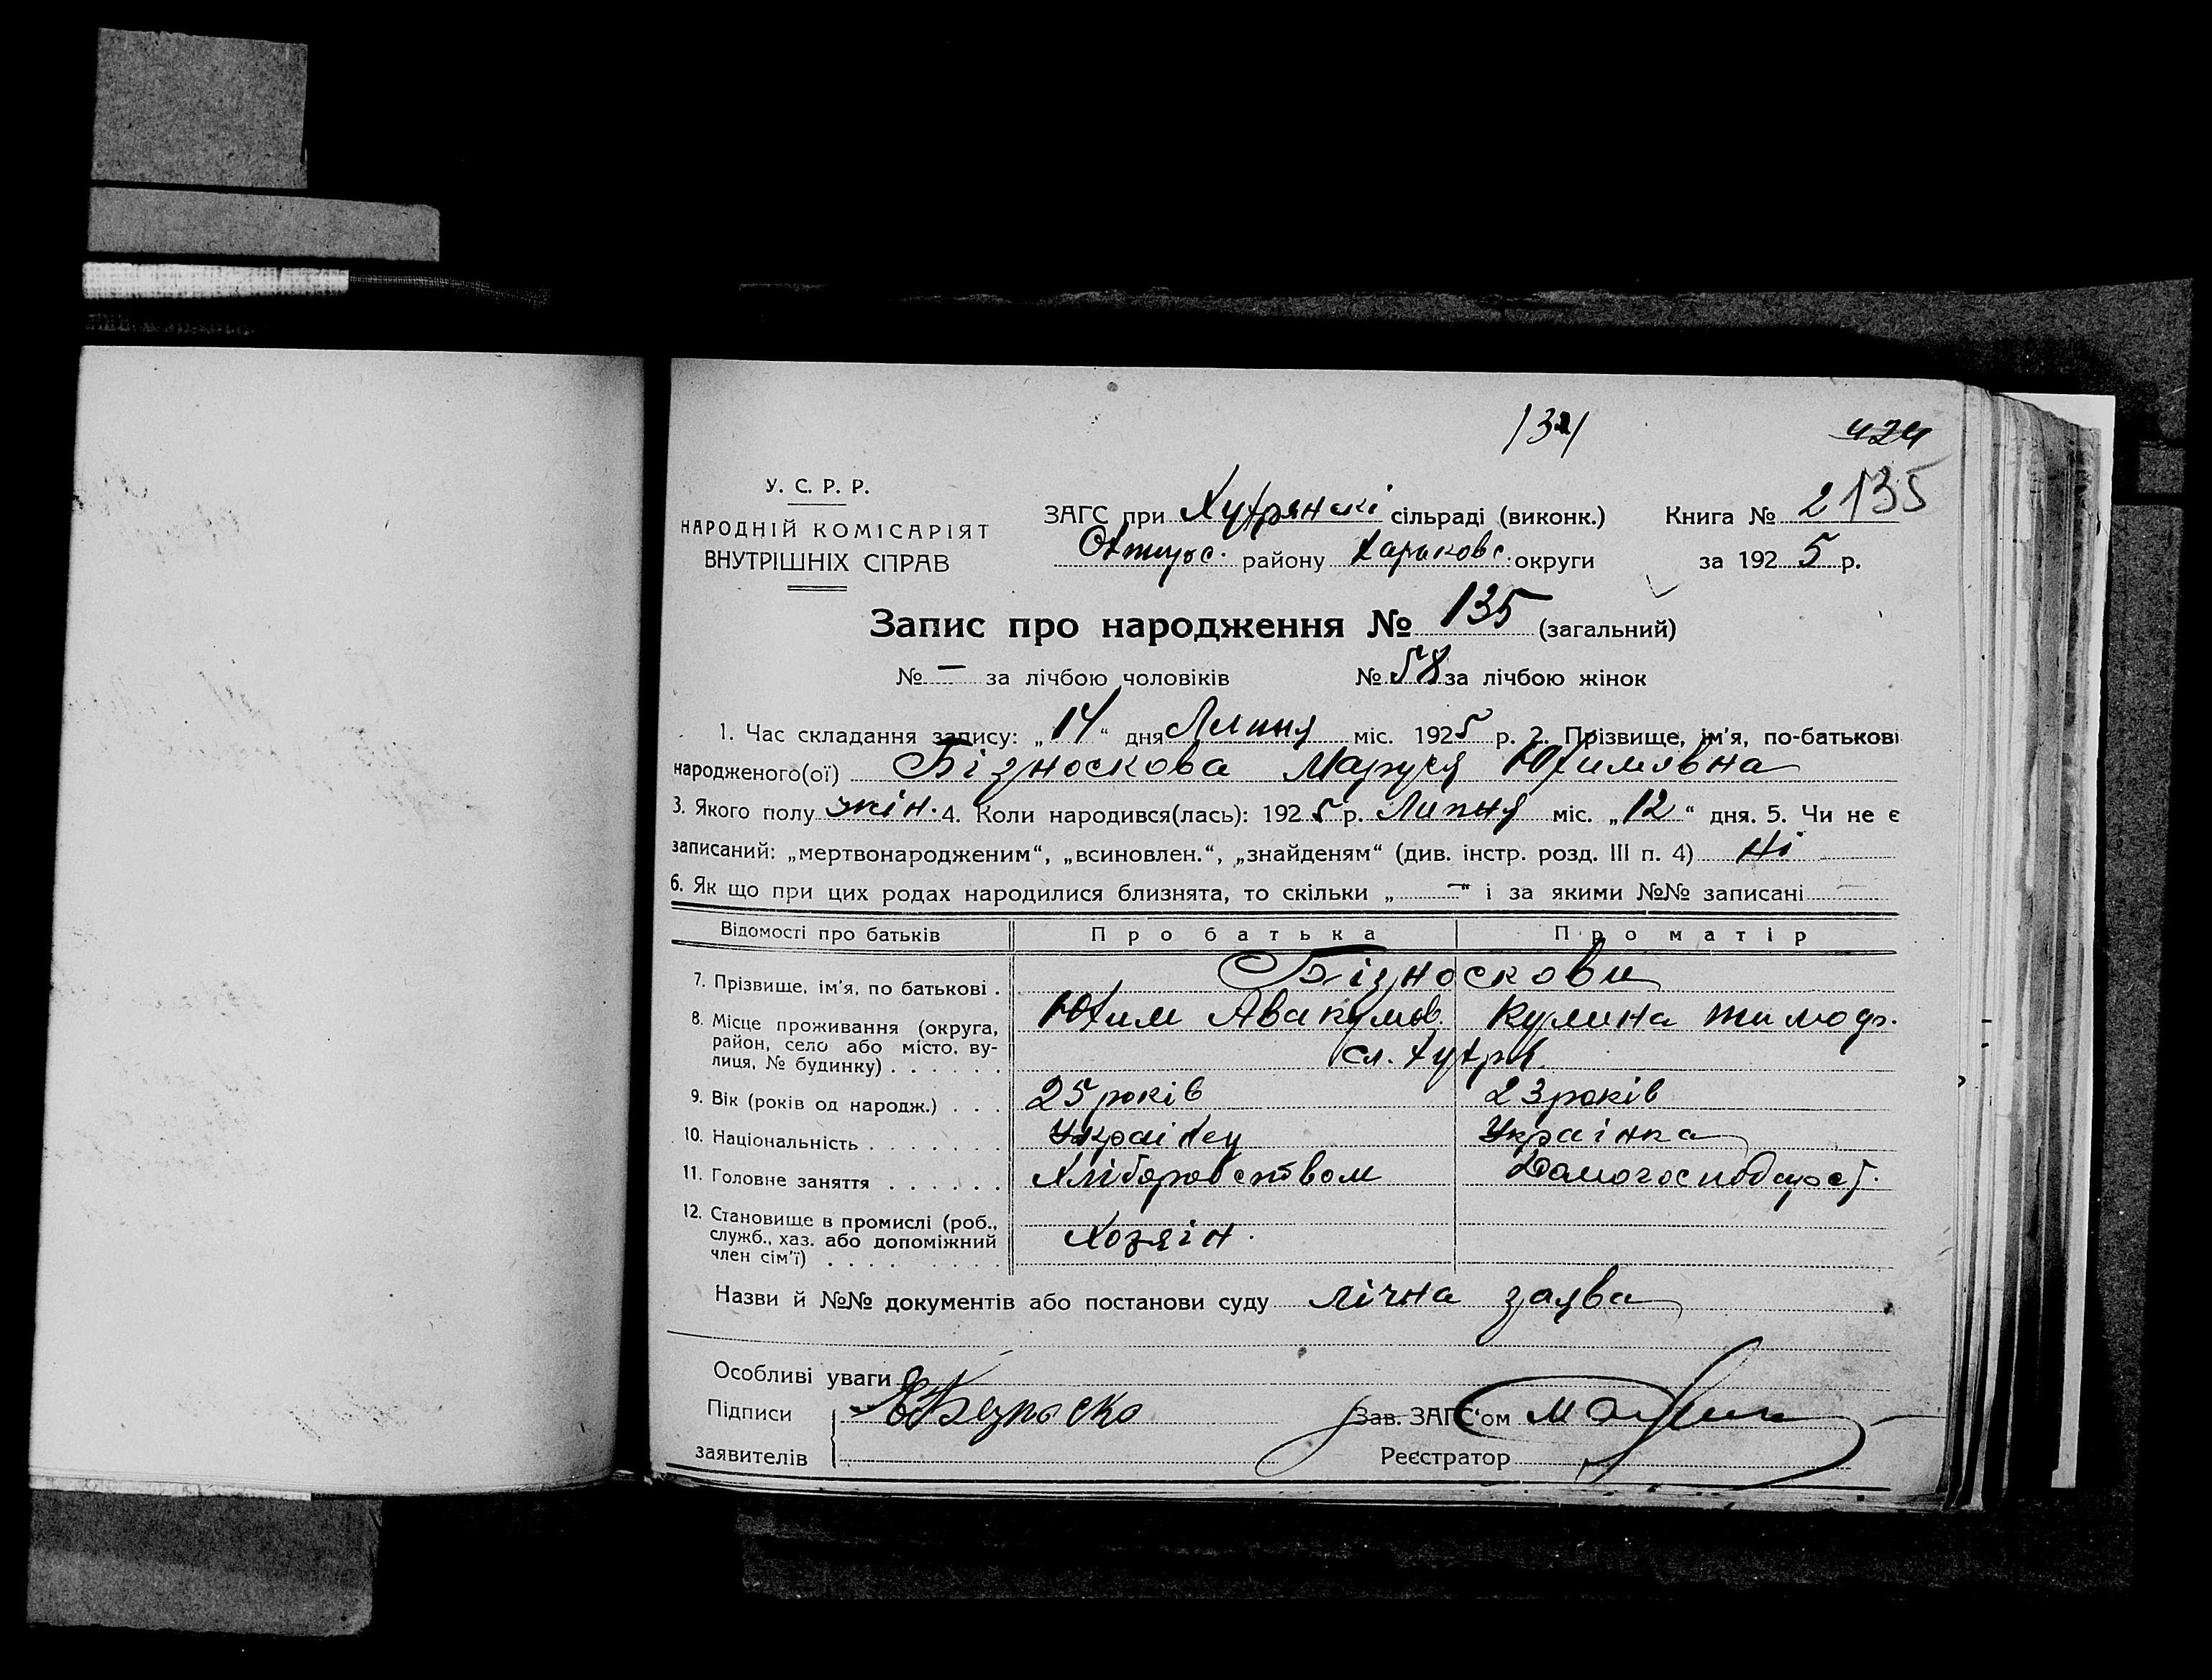 424
У. С. Р. Р.
НАРОДНІЙ КОМІСАРІЯТ
ВНУТРІШНІХ СПРАВ
ЗАГС при Хухрянскі сільраді (виконк.) Книга № 2 135
Охтирс. району Харьковс. округи за 1925 р.
Запис про народження № 135 (загальний)
№ — за лічбою чоловіків № 58 за лічбою жінок
1. Час складання запису: „14“ дня Липня міс. 1925 р. 2. Прізвище, ім'я, по-батькові
народженого(ої) Бізноскова Маруся Юхимовна
3. Якого полу жін. 4. Коли народився(лась): 1925 р. Липня міс. „12“ дня. 5. Чи не є
записаний: „мертвонародженим“, „всиновлен.“, „знайденям“ (див. інстр. розд. III п. 4) Ні
6. Як що при цих родах народилися близнята, то скільки „—“ і за якими №№ записані —
Відомості про батьків Про батька Про матір
7. Прізвище, ім'я, по батькові . Бізноскови
Юхим Авакумов. Кулина
8. Місце проживання (округа, район, село або місто, вулиця, № будинку) . . . . . . сл. Хухра
9. Вік (років од народж.) . . . 25 років 23 років
10. Національність . . . . . . . Украінец Украінка
11. Головне заняття . . . . . . Хліборобством Домогосподарст.
12. Становище в промислі (роб., служб., хаз. або допоміжний член сім'ї) . . . . . . . . . Хозяін.
Назви й №№ документів або постанови суду лічна заява
Особливі уваги
Підписи Безноско Зав. ЗАГС'ом
заявителів Реєстратор